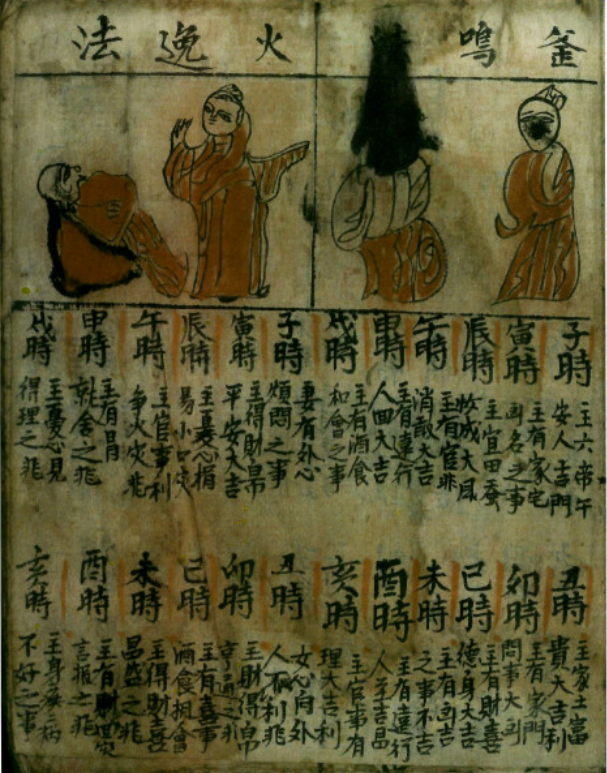 釜鳴
火逸法
子時
主六帝午
安人吉門
寅時
主有家宅
凶名之事
辰時
主宜田蚕
收成大風
午時
主有官非
消散大吉
申時
主有遠行
人回大吉
戌時
主有酒食
和會之事
子時
妻有外心
煩悶之事
寅時
主得財帛
平安大吉
辰時
主憂心損
易小口灾
午時
主官事利
爭火灾兆
申時
主有
就舍之兆
戌時
主憂心見
得理之兆
丑時
主家土富
貴大吉利
卯時
主有家門
問事大凶
巳時
主有財喜
德身大吉
未時
主有凶吉
之事不吉
酉時
主有遠行
人至吉昌
亥時
主官事有
理大吉利
丑時
女心向外
人不利兆
卯時
主財得帛
亨通之兆
巳時
主有喜事
酒食相會
未時
主得財喜
昌盛之兆
酉時
主有財
言報之兆
亥時
主身疾病
不好之事